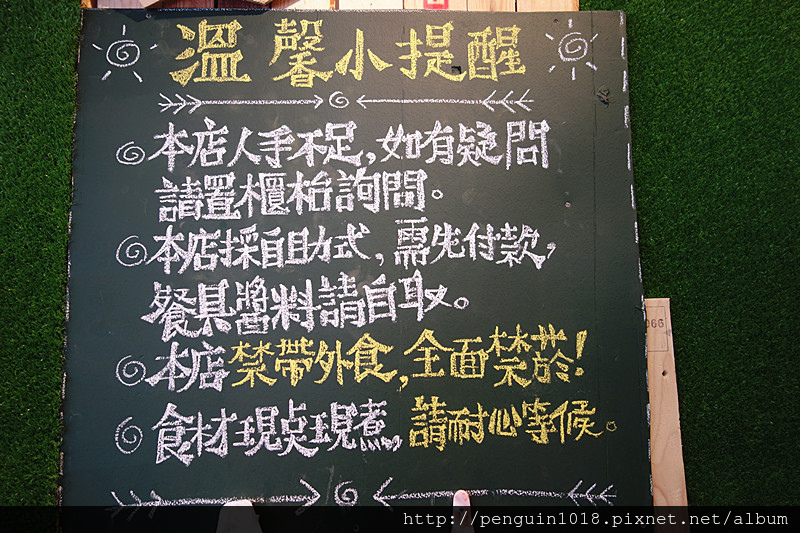 溫馨小提醒
本店人手不足,如有疑問
請置櫃枱詢問。
本店採自助式,需先付款,
餐具醬料請自取。
本店禁帶外食,全面禁菸!
食材現点現煮,請耐心等候。
http://penguin1018.pixnet.net/album